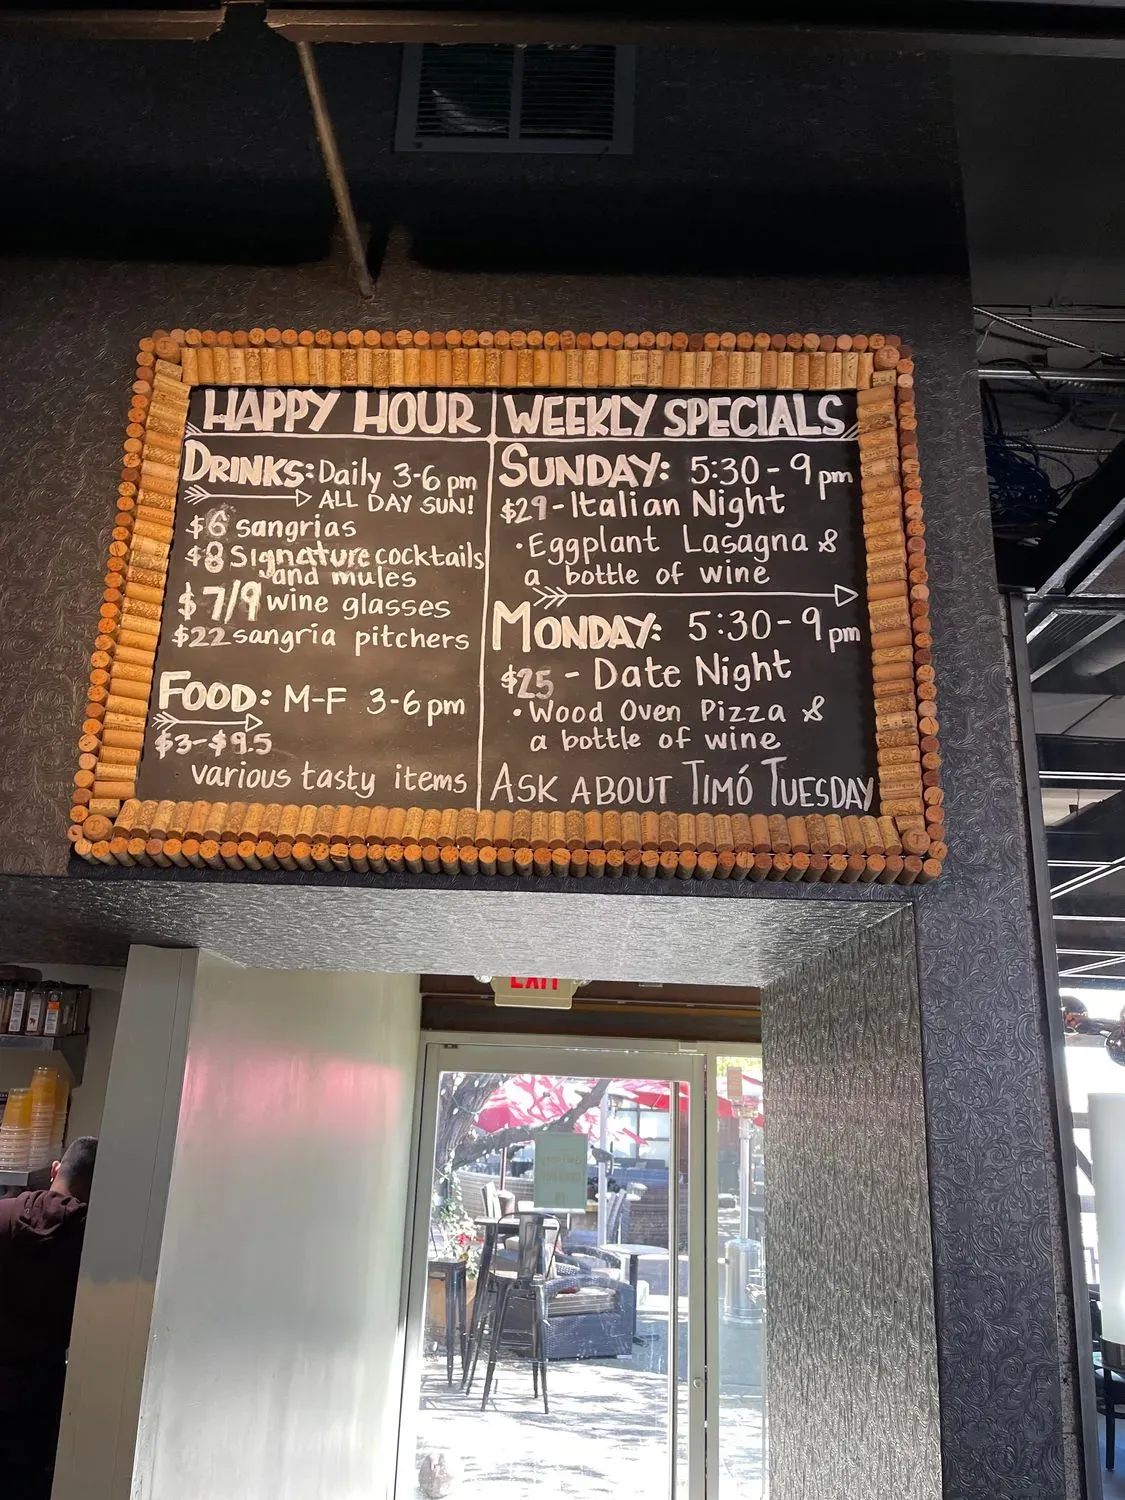 HAPPY HOUR
DRINKS: Daily 3-6 pm
ALL DAY SUN!
$6 sangrias
$8 signature cocktails
and mules
$7/9 wine glasses
$22 sangria pitchers
FOOD: M-F 3-6 pm
$3-$9.5
various tasty items
WEEKLY SPECIALS
SUNDAY: 5:30-9 pm
$29-Italian Night
•Eggplant Lasagna &
a bottle of wine
MONDAY: 5:30-9 pm
$25 - Date Night
•Wood Oven Pizza &
a bottle of wine
ASK ABOUT TIMÓ TUESDAY
EXIT